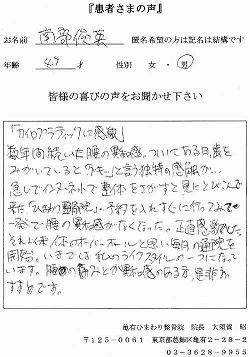 『患者さまの声』
お名前 南部俊英 匿名希望の方は記名は結構です
年齢 49才 性別 女・男
皆様の喜びの声をお聞かせ下さい
「カイロプラティックに感敏」
数年間続いた腰の異和感。ついてある日歯を
みがいていると"ウキ"と言う独特の感触が…
急いでインターネットで整体をさがすと見にとびこんで
来た「ひまわり整骨院」。予約を入れすぐに行ってみて
一発で腰の異和感がなくなった。正直感動でした。
それ以来体のオーバーホールと思い毎日の通院を
開始。いまでは私のライフスタイルの一つになって
います。腰の痛みとか異和感のある方、是非お
すすめです。
亀有ひまわり整骨院 院長 大須賀 昭
〒125-0061 東京都葛飾区亀有2-28-2
03-3628-9955